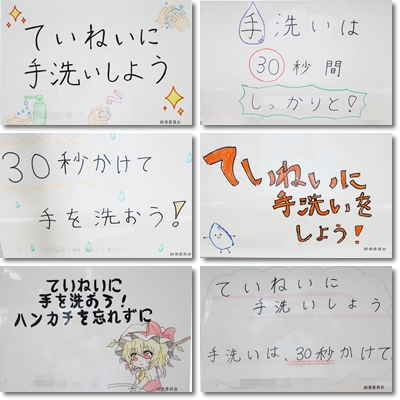 ていねいに
手洗いしよう
給食委員会
手洗いは
30秒間
しっかりと!
給食委員会
30秒かけて
手を洗おう!
給食委員会
ていねいに
手洗いを
しよう!
給食委員会
ていねいに
手を洗おう!
ハンカチを忘れずに
給食委員会
ていねいに
手洗いしよう
手洗いは、30秒かけて
給食委員会